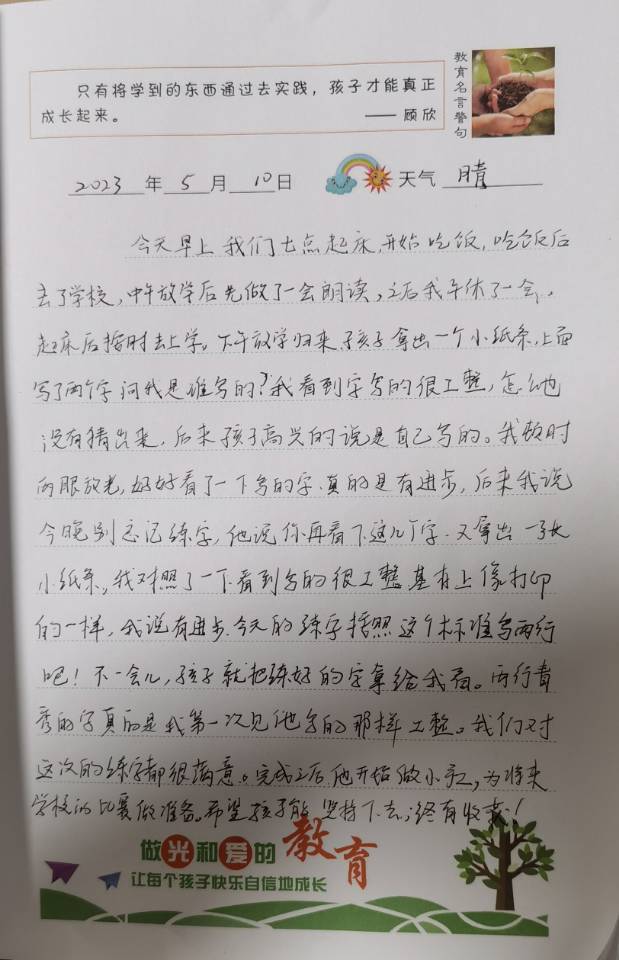 只有将学到的东西通过去实践，孩子才能真正
成长起来。 —— 顾欣
教育名言警句
2023 年 5 月 10 日 天气 晴
今天早上我们七点起床,开始吃饭,吃饭后
去了学校,中午放学后先做了一会朗读,之后我午休了一会,
起床后按时去上学。下午放学归来,孩子拿出一个小纸条,上面
写了两个字,问我是谁写的?我看到字写的很工整,怎么也
没有猜出来,后来孩子高兴的说是自己写的。我顿时
两眼放光,好好看了一下写的字,真的是有进步,后来我说
今晚别忘记练字,他说你再看下这几个字.又拿出一张
小纸条,我对照了一下看到写的很工整基本上像打印
的一样,我说有进步.今天的练字按照这个标准写两行
吧!不一会儿,孩子就把练好的字拿给我看。两行青
秀的字真的是我第一次见他写的那样工整。我们对
这次的练字都很满意。完成之后他开始做小手工,为将来
学校的比赛做准备。希望孩子能坚持下去,终有收获!
做光和爱的教育
让每个孩子快乐自信地成长